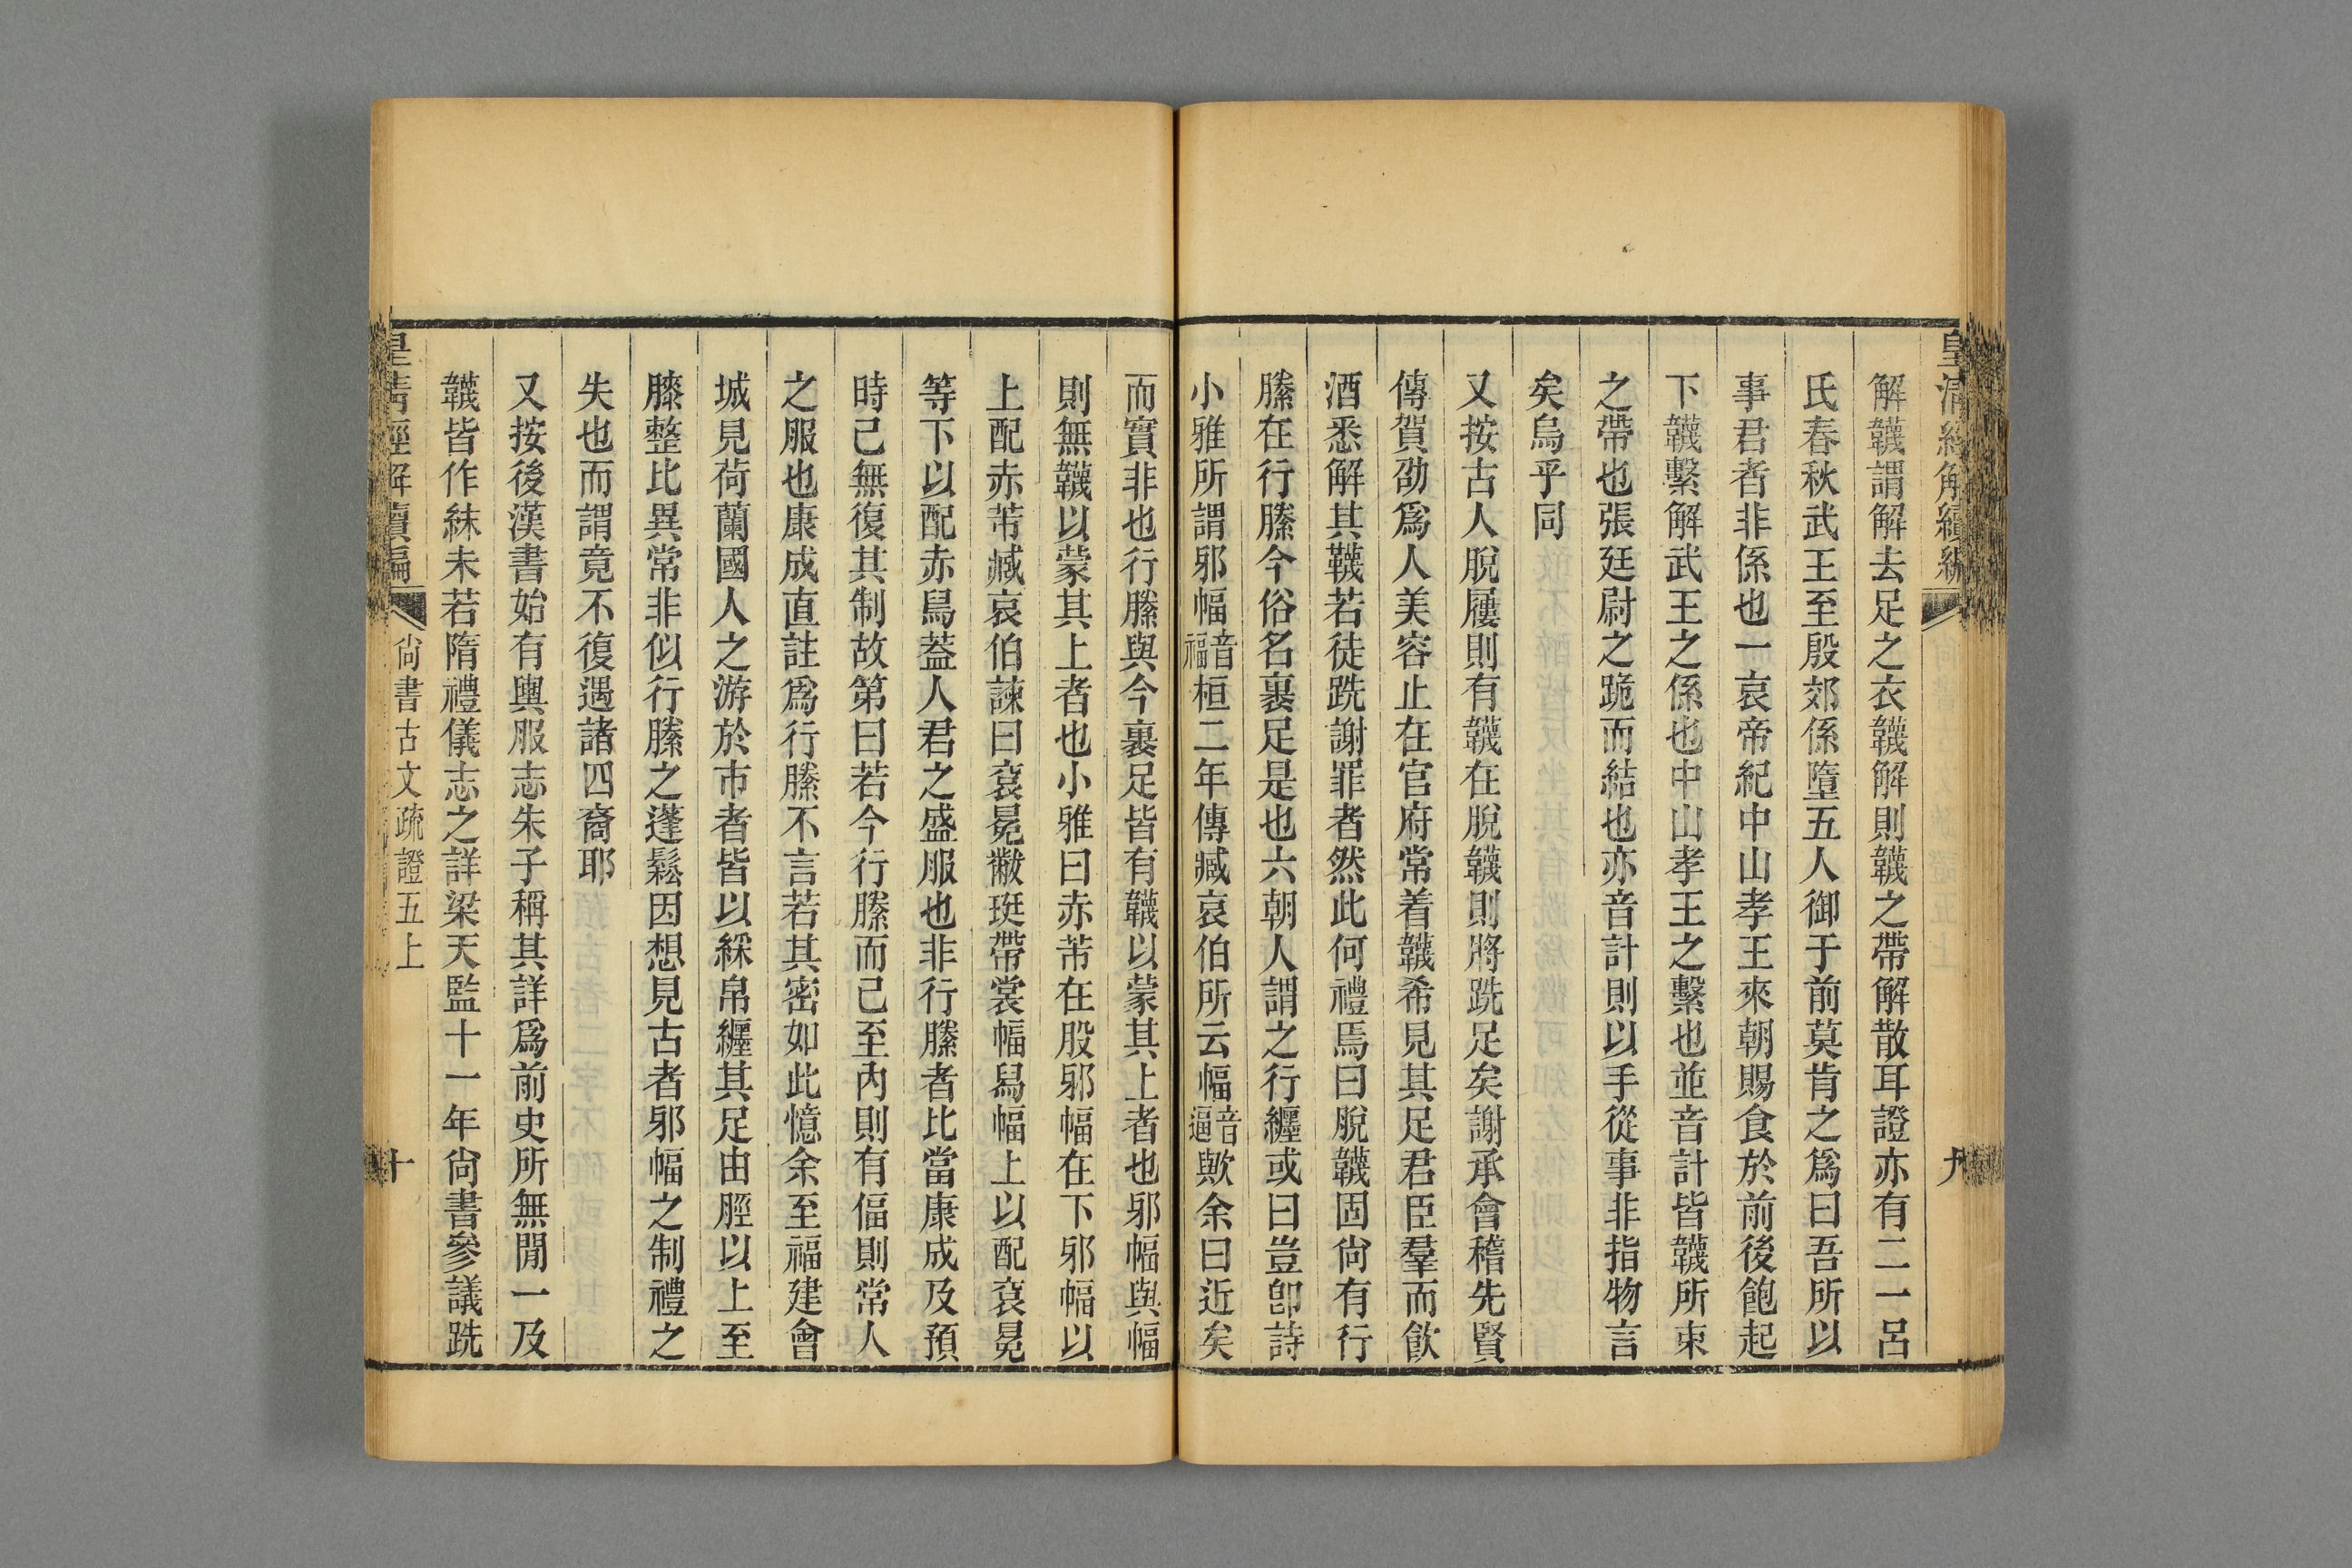 皇清經解續編
九
解韈謂解去足之衣韈解則韈之帶解散耳證亦有二一呂
氏春秋武王至殷郊係墮五人御于前莫肯之爲曰吾所以
事君者非係也一哀帝紀中山孝王來朝賜食於前後飽起
下韈繫解武王之係也中山孝王之繫也並音計皆韈所束
之帶也張廷尉之跪而結也亦音計則以手從事非指物言
矣烏乎同
又按古人脫屨則有韈在脫韈則將跣足矣謝承會稽先賢
傳賀劭爲人美容止在官府常着韈希見其足君臣羣而飮
酒悉解其韈若徒跣謝罪者然此何禮焉曰脫韈固尙有行
縢在行縢今俗名裹足是也六朝人謂之行纏或曰豈卽詩
小雅所謂邪幅音福桓二年傳臧哀伯所云幅音逼歟余曰近矣
而實非也行縢與今裹足皆有韈以蒙其上者也邪幅與幅
則無韈以蒙其上者也小雅曰赤芾在股邪幅在下邪幅以
上配赤芾臧哀伯諫曰袞冕黻珽帶裳幅舄幅上以配袞冕
等下以配赤舄蓋人君之盛服也非行縢者比當康成及預
時已無復其制故第曰若今行縢而已至內則有偪則常人
之服也康成直註爲行縢不言若其密如此憶余至福建會
城見荷蘭國人之游於市者皆以綵帛纏其足由脛以上至
膝整比異常非似行縢之蓬鬆因想見古者邪幅之制禮之
失也而謂竟不復遇諸四裔耶
又按後漢書始有輿服志朱子稱其詳爲前史所無閒一及
韈皆作絉未若隋禮儀志之詳梁天監十一年尙書參議跣
皇清經解續編
尙書古文疏證五上
十